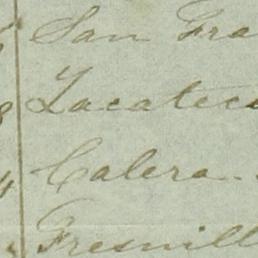 San Fra
Zacatec
Calera
Fresnill